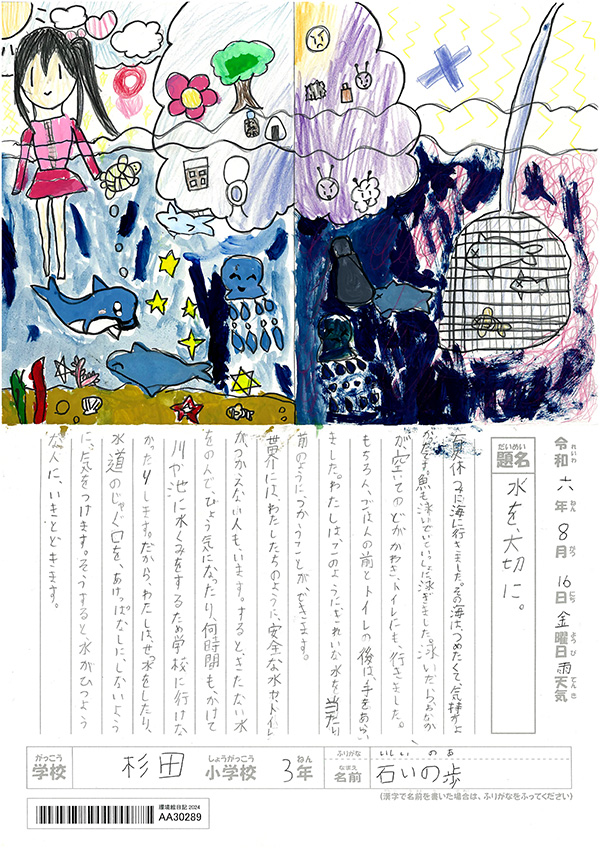 令和六年8月16日金曜日雨天気
れいわ ねん がつ にち ようび てんき
だいめい
題名
水を、大切に。
夏休みに海に行きました。その海は、つめたくて、気持がよ
かったです。魚も泳いでいていっしょに泳ぎました。泳いだらおなか
が空いてのどがかわき、トイレにも、行きました。
もちろん、ごはんの前とトイレの後は、手をあらい
ました。わたしは、このようにきれいな水を当たり
前のように、つかうことが、できます。
世界には、わたしたちのように安全な水やトイレ
がつかえない人もいます。すると、きたない水
をのんでびょう気になったり、何時間も、かけて
川や池に水くみをするため学校に行けな
かったりします。だから、わたしは、せつ水をしたり、
水道のじゃ口を、あけっぱなしにしないよう
に、気をつけます。そうすると、水がひつよう
な人に、いきとどきます。
がっこう
学校
杉田
しょうがっこう
小学校
3年
ねん
ふりがな
いしい のあ
なまえ
名前
石いの歩
(漢字で名前を書いた場合は、ふりがなをふってください)
環境絵日記 2024
AA30289